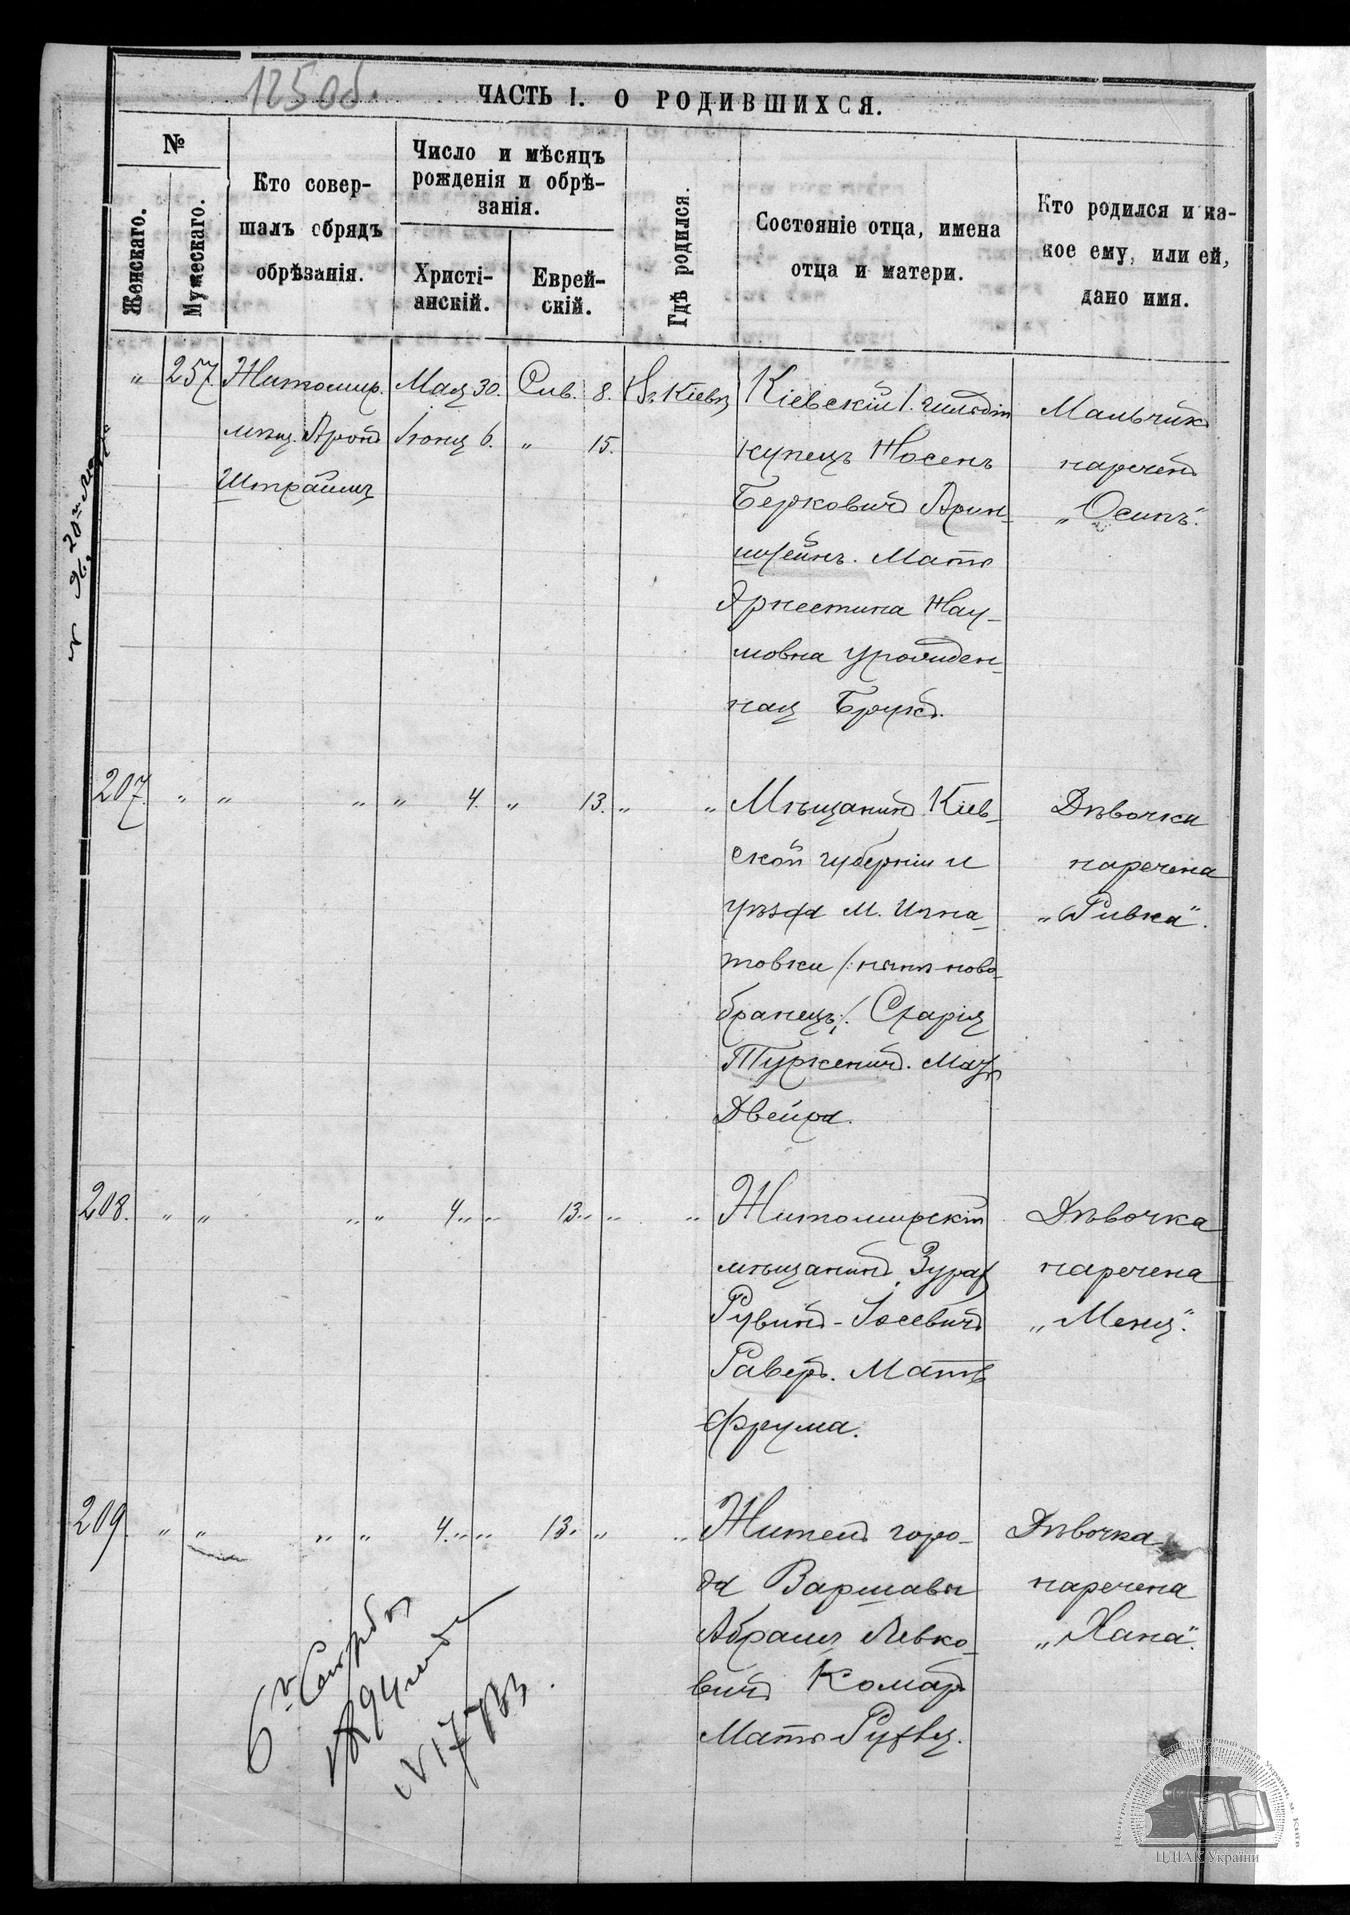 125 об.
ЧАСТЬ I. О РОДИВШИХСЯ.
№
Женскаго.
Мужескаго.
Кто совер-
шалъ обрядъ
обрѣзанія.
Число и мѣсяцъ
рожденія и обрѣ-
занія.
Христі-
анскій.
Еврей-
скій.
Гдѣ родился.
Состояніе отца, имена
отца и матери.
Кто родился и ка-
кое ему, или ей,
дано имя.
" 257. Житомир. Мая 30. Сив. 8. Въ Кіевѣ
мѣщ. Аронъ Іюня 6. " 15.
Штраймъ
Кіевскій 1. гильдіи
купецъ Носенъ
Берковичъ Арин-
штейнъ. Мать
Эрнестина Нау-
мовна урожден-
ная Брукъ.
Мальчикъ
нареченъ
„Осипъ".
207. " " " " 4. " 13. " "
Мѣщанинъ Кіев-
ской губерніи и
уѣзда М. Игна-
товки /: нынѣ ново-
бранецъ:/. Схарія
Туркеничъ. Мать
Двейра.
Дѣвочка
наречена
„Ривка".
208. " " " " 4. " 13. " "
Житомирскій
мѣщанинъ
Рувинъ-Іосевичъ
Раверъ. Мать
Фрума.
Дѣвочка
наречена
„Меня".
209. " " " " 4. " 13. " "
Житель горо-
да Варшавы
Абрамъ Левко-
вичъ Комар
Мать Рухля.
Дѣвочка
наречена
„Хана".
ЦДІАК України